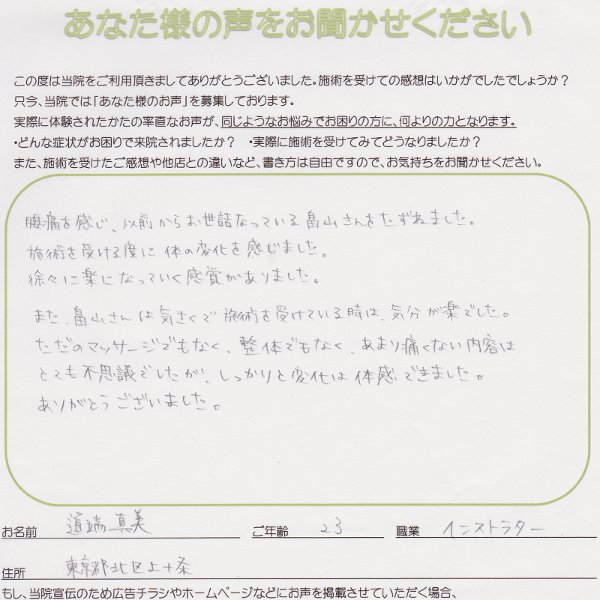 あなた様の声をお聞かせください
この度は当院をご利用頂きましてありがとうございました。施術を受けての感想はいかがでしたでしょうか？
只今、当院では「あなた様のお声」を募集しております。
実際に体験されたかたの率直なお声が、同じようなお悩みでお困りの方に、何よりの力となります。
・どんな症状がお困りで来院されましたか？ ・実際に施術を受けてみてどうなりましたか？
また、施術を受けたご感想や他店との違いなど、書き方は自由ですので、お気持ちをお聞かせください。
腰痛を感じ、以前からお世話なっている畠山さんをたずねました。
施術を受ける度に体の変化を感じました。
徐々に楽になっていく感覚がありました。
また、畠山さんは気さくで施術を受けている時は、気分が楽でした。
ただのマッサージでもなく、整体でもなく、あまり痛くない内容は
とても不思議でしたが、しっかりと変化は体感できました。
ありがとうございました。
お名前 道端真美 ご年齢 23 職業 インストラクター
住所 東京都北区上十条
もし、当院宣伝のため広告チラシやホームページなどにお声を掲載させていただく場合、